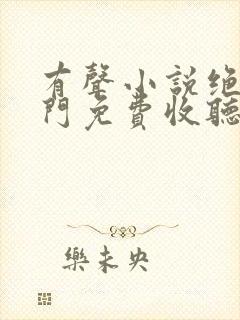 有聲小說绝
門免費收聽
樂未央